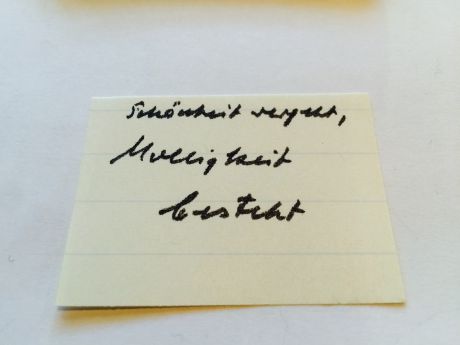 Schönheit vergeht,
Molligkeit
besteht